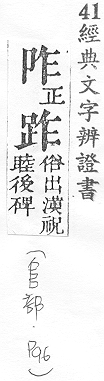 41
經典文字辨證書
正
俗出漢祝
睦後碑
部．P96)